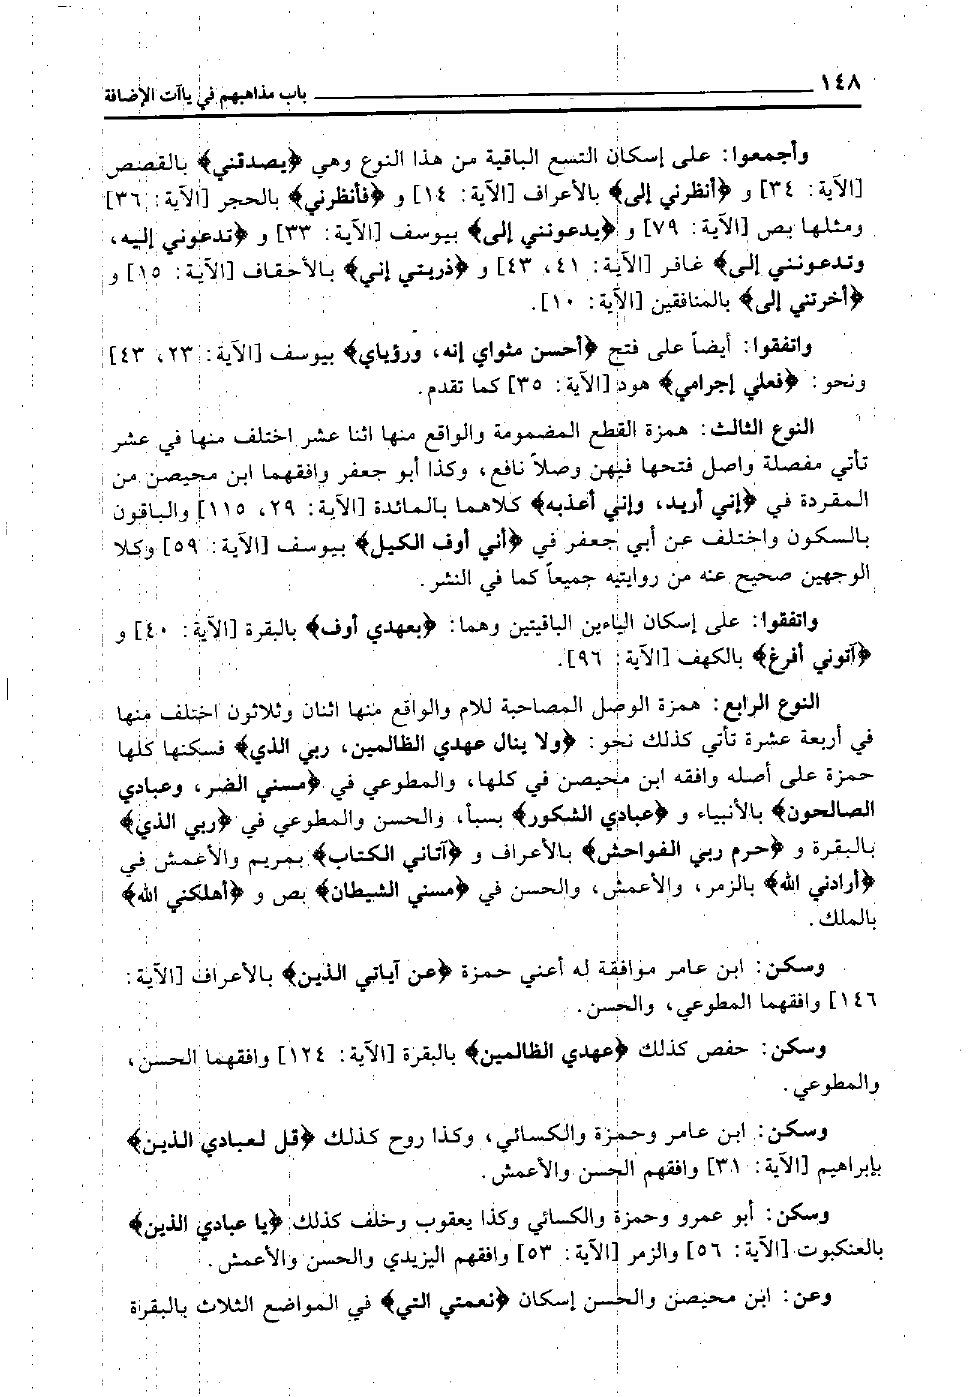 ١٤٨ باب مذاهبهم في ياآت الإضافة
وأجمعوا: على إسكان التسع الباقية من هذا النوع وهي ﴿يصدقني﴾ بالقصص
[الآية: ٣٤] و ﴿أنظرني إلى﴾ بالأعراف [الآية: ١٤] و ﴿فأنظرني﴾ بالحجر [الآية: ٣٦]
ومثلها بص [الآية: ٧٩] و ﴿يدعونني إلى﴾ بيوسف [الآية: ٣٣] و ﴿تدعوني إليه،
وتدعونني إلى﴾ غافر [الآية: ٤١، ٤٣] و ﴿ذريتي إني﴾ بالأحقاف [الآية: ١٥] و
﴿أخرتني إلى﴾ بالمنافقين [الآية: ١٠].
واتفقوا: أيضاً على فتح ﴿أحسن مثواي إنه، ورؤياي﴾ بيوسف [الآية: ٢٣، ٤٣]
ونحو: ﴿فعلي إجرامي﴾ هود [الآية: ٣٥] كما تقدم.
النوع الثالث: همزة القطع المضمومة والواقع منها اثنا عشر اختلف منها في عشر
تأتي مفصلة واصل فتحها فيهن وصلاً نافع، وكذا أبو جعفر وافقهما ابن محيصن من
المفردة في ﴿إني أريد، وإني أعذبه﴾ كلاهما بالمائدة [الآية: ٢٩، ١١٥] والباقون
بالسكون واختلف عن أبي جعفر في ﴿أني أوف الكيل﴾ بيوسف [الآية: ٥٩] وكلا
الوجهين صحيح عنه من روايتيه جميعاً كما في النشر.
واتفقوا: على إسكان الياءين الباقيتين وهما: ﴿بعهدي أوف﴾ بالبقرة [الآية: ٤٠] و
﴿آتوني أفرغ﴾ بالكهف [الآية: ٩٦].
النوع الرابع: همزة الوصل المصاحبة للام والواقع منها اثنان وثلاثون اختلف منها
في أربعة عشرة تأتي كذلك نحو: ﴿ولا ينال عهدي الظالمين، ربي الذي﴾ فسكنها كلها
حمزة على أصله وافقه ابن محيصن في كلها، والمطوعي في ﴿مسني الضر، وعبادي
الصالحون﴾ بالأنبياء و ﴿عبادي الشكور﴾ بسبأ، والحسن والمطوعي في ﴿ربي الذي﴾
بالبقرة و ﴿حرم ربي الفواحش﴾ بالأعراف و ﴿آتاني الكتاب﴾ بمريم والأعمش في
﴿أرادني الله﴾ بالزمر، والأعمش، والحسن في ﴿مسني الشيطان﴾ بص و ﴿أهلكني الله﴾
بالملك.
وسكن: ابن عامر موافقة له أعني حمزة ﴿عن آياتي الذين﴾ بالأعراف [الآية:
١٤٦] وافقهما المطوعي، والحسن.
وسكن: حفص كذلك ﴿عهدي الظالمين﴾ بالبقرة [الآية: ١٢٤] وافقهما الحسن،
والمطوعي.
وسكن: ابن عامر وحمزة والكسائي، وكذا روح كذلك ﴿قل لعبادي الذين﴾
بإبراهيم [الآية: ٣١] وافقهم الحسن والأعمش.
وسكن: أبو عمرو وحمزة والكسائي وكذا يعقوب وخلف كذلك ﴿يا عبادي الذين﴾
بالعنكبوت [الآية: ٥٦] والزمر [الآية: ٥٣] وافقهم اليزيدي والحسن والأعمش.
وعن: ابن محيصن والحسن إسكان ﴿نعمتي التي﴾ في المواضع الثلاث بالبقرة